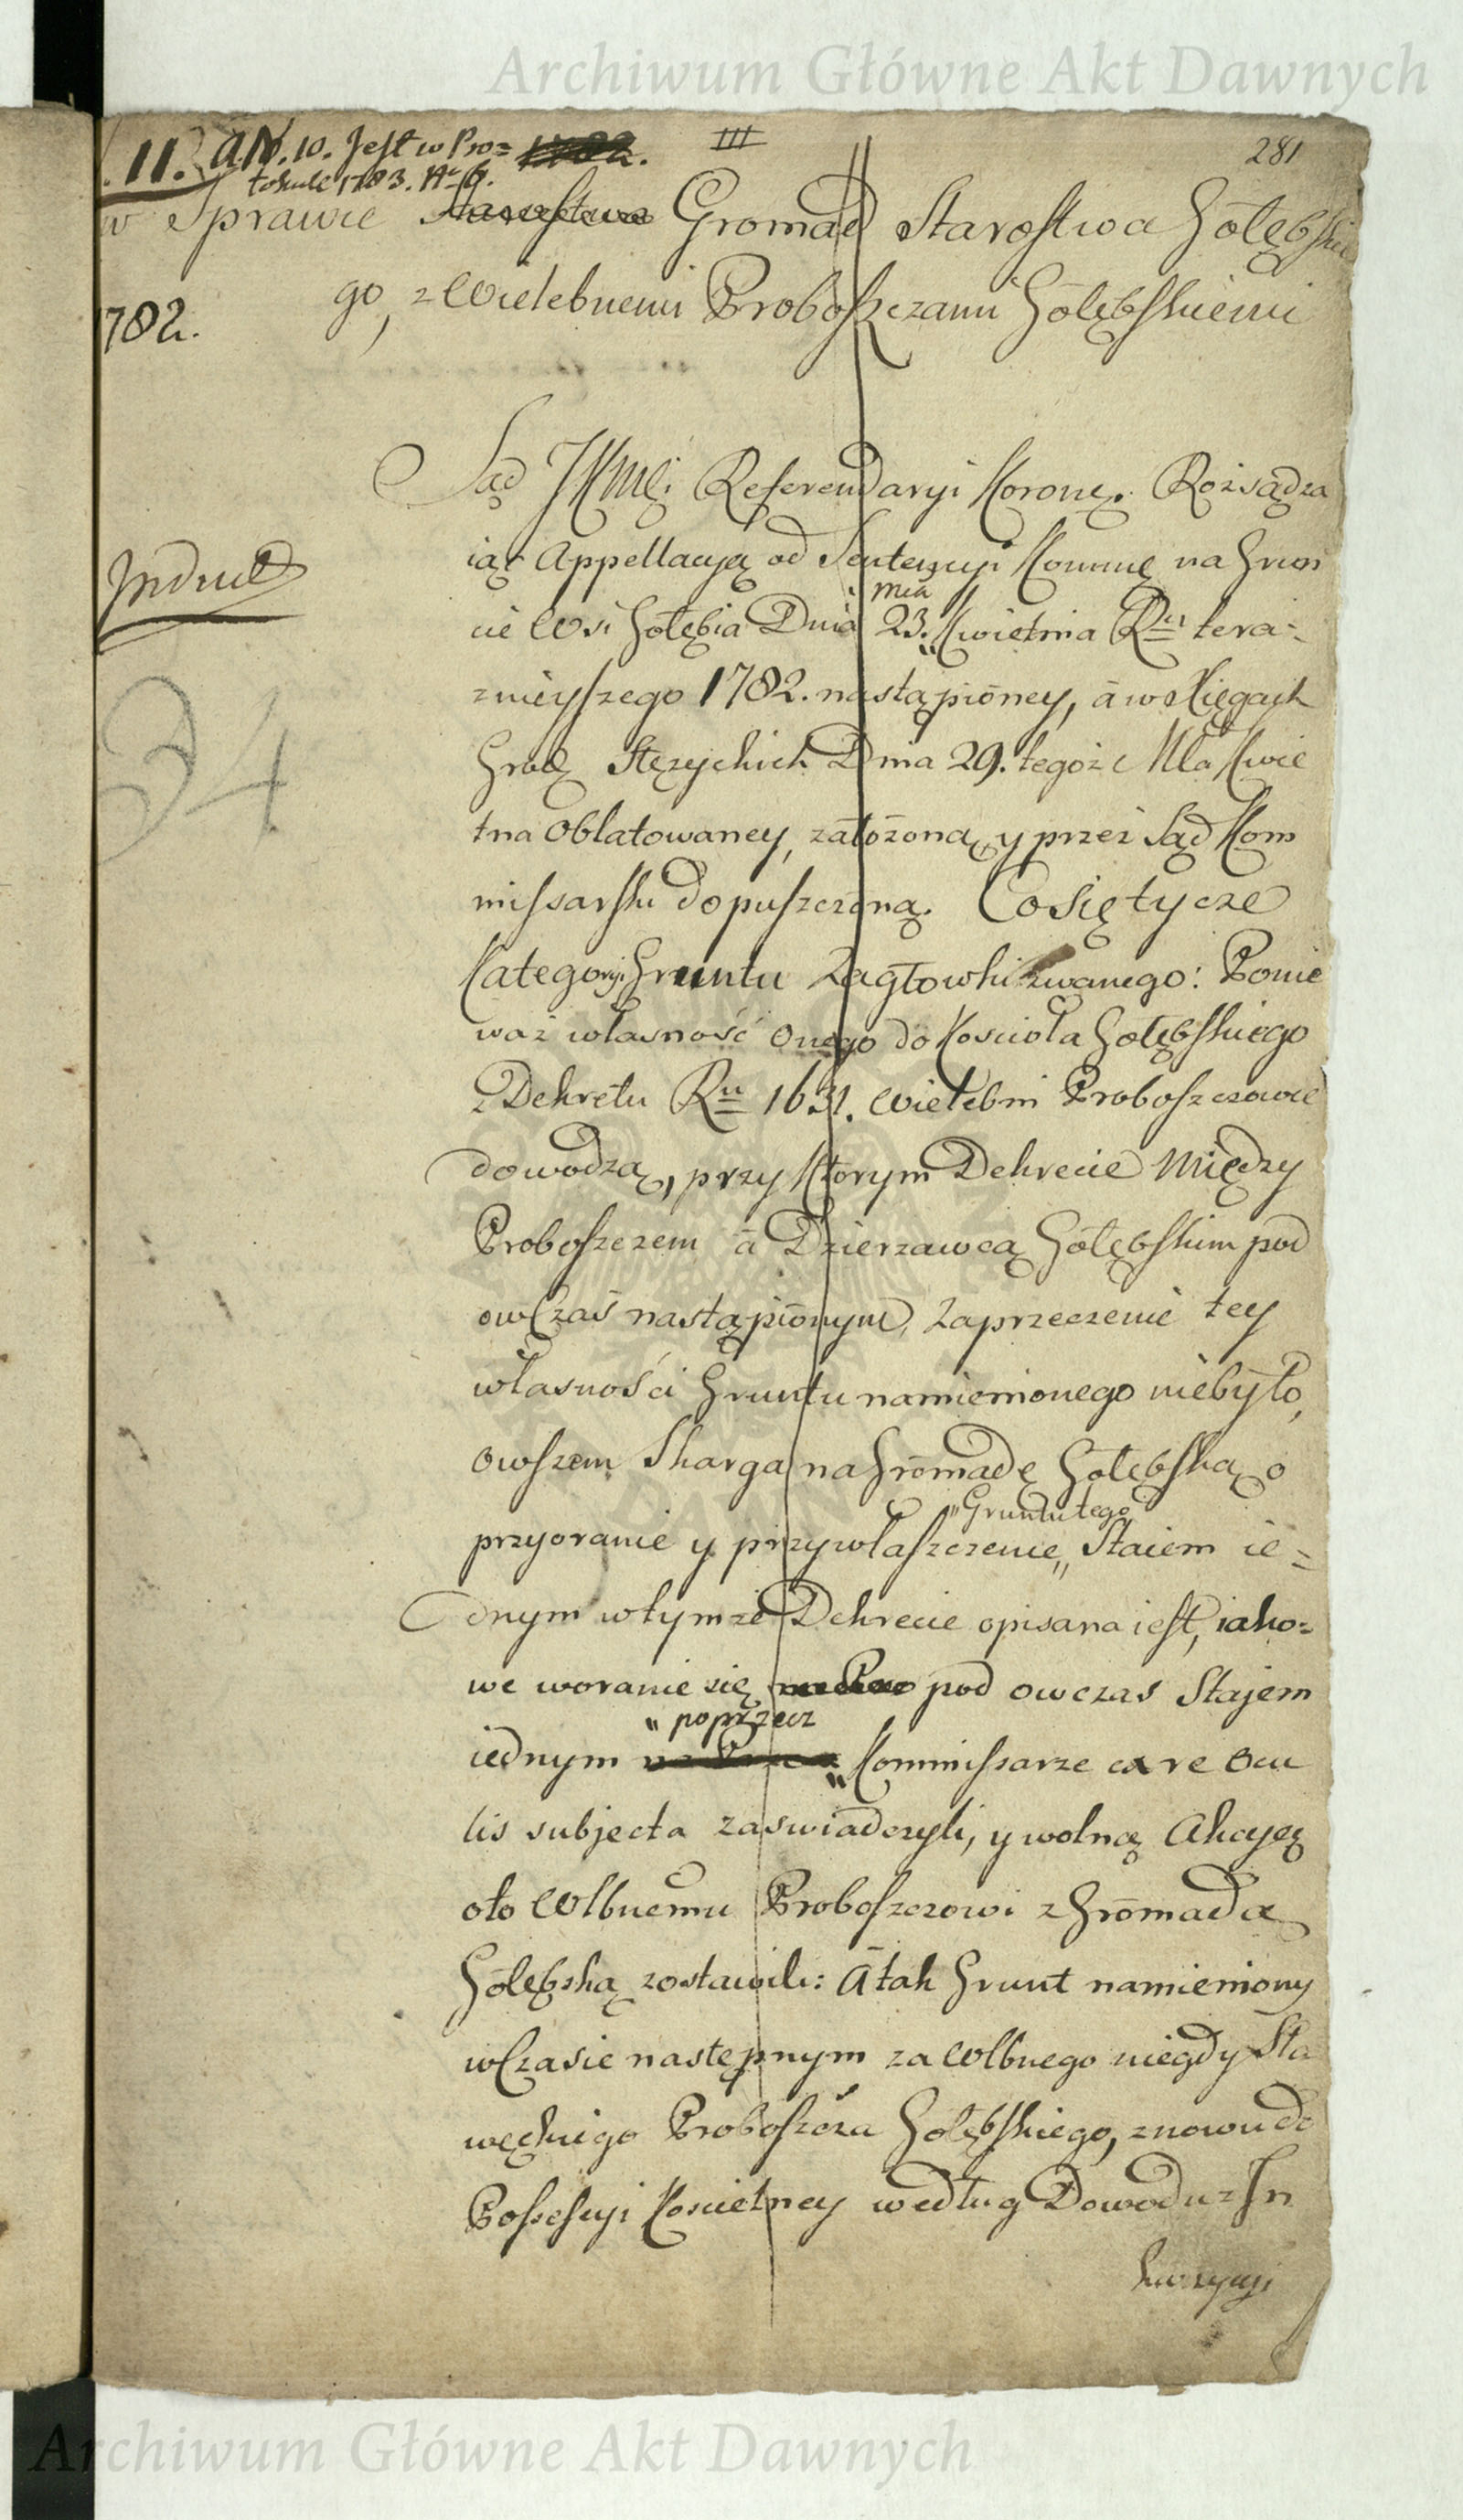 Archiwum Główne Akt Dawnych
11. ad N. 10. Jest w Pro=
tokule 1783. Nr 6.
III
281
w Sprawie Starostwa Gromad Starostwa Gołębskie
go, z Wielebnemi Proboszczami Gołębskiemi
1782.
Sąd JKMci Referendaryi Koronę. Rozsądza
iąc Appellacyą od Sentencyi Kommę na Grun
Induct
mia
cie Wsi Gołębia Dnia 23. Kwietnia Ru tera=
znieyszego 1782. nastąpioney, á w Xięgach
34
Grodę Stęzyckich Dnia 29. tegoż Mca Kwie
tna Oblatowaney, założoną, y przez Sąd Kom
missarski dopuszczoną. Co się tycze
Kategoryi Gruntu Zagłowki zwanego: Ponie
waż własność onego do Kościoła Gołębskiego
z Dekretu Ru 1631. Wielebni Proboszczowie
dowodzą, przy Ktorym Dekrecie Między
Proboszczem á Dzierzawcą Gołębskim pod
owczas nastąpionym, Zaprzeczenie tey
własności Gruntu namienionego niebyło,
owszem Skarga na Gromadę Gołębską o
" Gruntu tego
przyoranie y przywłaszczenie „ Staiem ie=
dnym w tymże Dekrecie opisana iest, iako=
we woranie się pod owczas Stajem
" poprzecz
iednym „ Kommissarze ex re ocu
lis subjecta zaswiadczyli, y wolną Akcyą
oto Wlbnemu Proboszczowi z Gromadą
Gołębską zostawili: A tak Grunt namieniony
w Czasie następnym za Wlbnego niegdy Sta
węckiego Proboszcza Gołębskiego, znowu do
Possessyi Koscielney według Dowodu z In
kwizycyi
Archiwum Główne Akt Dawnych